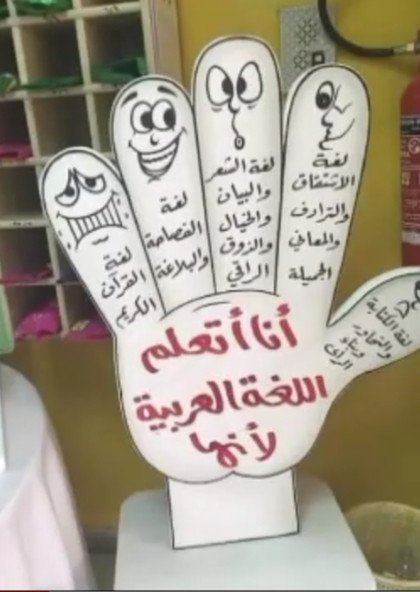 أنا أتعلم
اللغة العربية
لأنها
لغة
القرآن
الكريم
لغة
الفصاحة
والبلاغة
لغة الشعر
والبيان
والخيال
والزوق
الراقي
لغة
الاشتقاق
والترادف
والمعاني
الجميلة
لغة الكتابة
والتحاور
وبناء
الرأى